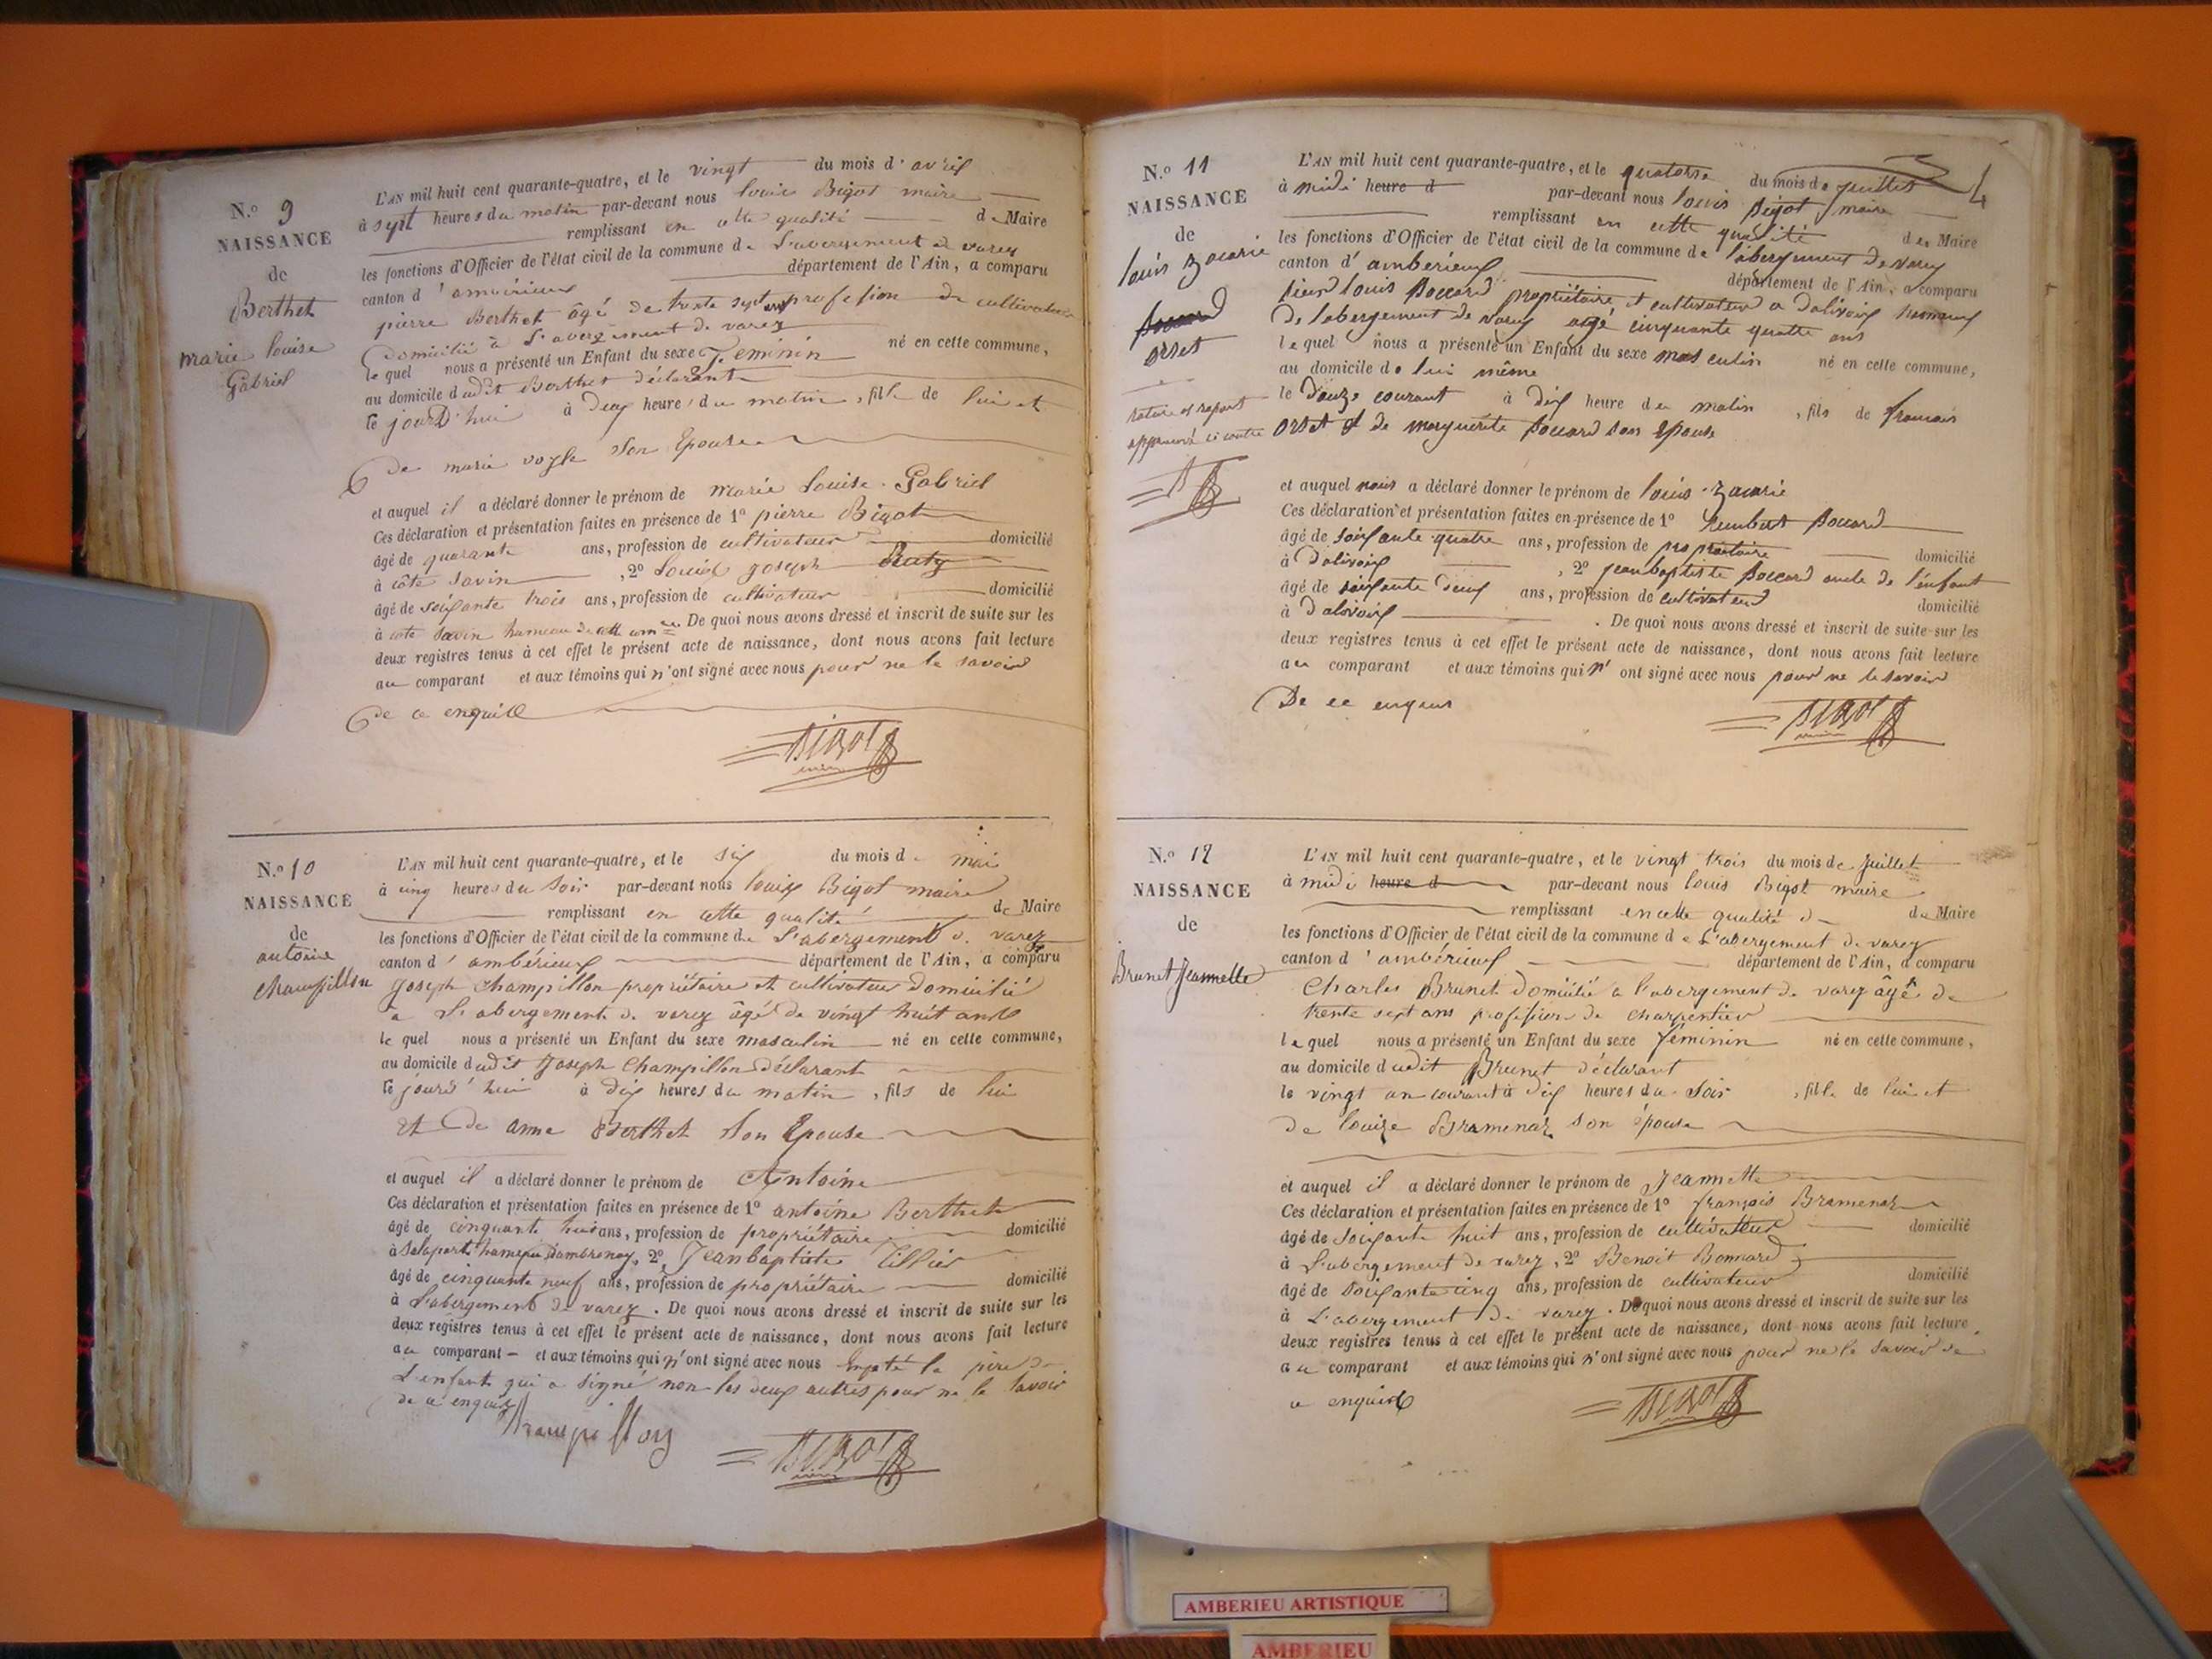 N.º 9
NAISSANCE
de
Berthet
marie louise
Gabriel
L'AN mil huit cent quarante-quatre, et le vingt du mois d' avril
à sept heures du matin par-devant nous louis Bigot maire
remplissant en cette qualité de Maire
les fonctions d'Officier de l'état civil de la commune de L'abergement de varey
canton d' département de l'Ain, a comparu
pierre Berthet âgé de trente sept ans profession de cultivateur
domicilié à L'abergement de varey
le quel nous a présenté un Enfant du sexe Feminin né en cette commune,
au domicile dudit Berthet déclarant
le jourd'hui à deux heures du matin, fille de lui et
de marie son Epouse
et auquel il a déclaré donner le prénom de marie Louise Gabriel
Ces déclaration et présentation faites en présence de 1º pierre Bigot
âgé de quarante ans, profession de cultivateur domicilié
à côte savin, 2º Louis joseph
âgé de soixante trois ans, profession de cultivateur domicilié
à cote savin hameau de cette com.ne De quoi nous avons dressé et inscrit de suite sur les
deux registres tenus à cet effet le présent acte de naissance, dont nous avons fait lecture
au comparant et aux témoins qui n'ont signé avec nous pour ne le savoir
de ce enquill
BIGOT
N.º 10
NAISSANCE
de
antoine
champillon
L'AN mil huit cent quarante-quatre, et le six du mois de mai
à cinq heures du soir par-devant nous louis Bigot maire
remplissant en cette qualité de Maire
les fonctions d'Officier de l'état civil de la commune de L'abergement de varey
canton d' ambérieux département de l'Ain, a comparu
joseph champillon propriétaire et cultivateur domicilié
a L'abergement de varey âgé de vingt huit ans
le quel nous a présenté un Enfant du sexe masculin né en cette commune,
au domicile dudit joseph champillon déclarant
le jourd'hui à dix heures du matin, fils de lui
et de anne Berthet son Epouse
et auquel il a déclaré donner le prénom de Antoine
Ces déclaration et présentation faites en présence de 1º antoine Berthet
âgé de cinquante huit ans, profession de propriétaire domicilié
à Salaport hameau d'ambronay, 2º Jean baptiste
âgé de cinquante neuf ans, profession de propriétaire domicilié
à L'abergement de varey. De quoi nous avons dressé et inscrit de suite sur les
deux registres tenus à cet effet le présent acte de naissance, dont nous avons fait lecture
au comparant et aux témoins qui n'ont signé avec nous le père de
L'enfant qui a signé non les deux autres pour ne le savoir
de ce enquis
Champillon
BIGOT
N.º 11
NAISSANCE
de
louis zacarie
orset
rature et raport
approuvé ci contre
L'AN mil huit cent quarante-quatre, et le quatorse du mois de juillet
à midi heure d par-devant nous louis Bigot maire
remplissant en cette qualité de Maire
les fonctions d'Officier de l'état civil de la commune de l'abergement de varey
canton d' ambérieux département de l'Ain, a comparu
louis Boccard propriétaire et cultivateur a dalivoix hameau
de labergement de varey agé cinquante quatre ans
le quel nous a présenté un Enfant du sexe masculin né en cette commune,
au domicile de lui même
le douze courant à dix heure du matin, fils de francois
orset et de marguerite Boccard son Epouse
et auquel nous a déclaré donner le prénom de louis zacarie
Ces déclaration et présentation faites en présence de 1º humbert Boccard
âgé de soixante quatre ans, profession de propriétaire domicilié
à dalivoix, 2º jean baptiste Boccard oncle de l'enfant
âgé de soixante deux ans, profession de cultivateur domicilié
à dalivoix. De quoi nous avons dressé et inscrit de suite sur les
deux registres tenus à cet effet le présent acte de naissance, dont nous avons fait lecture
au comparant et aux témoins qui n'ont signé avec nous pour ne le savoir
De ce enquis
BIGOT
N.º 12
NAISSANCE
de
Brunet Jeannette
L'AN mil huit cent quarante-quatre, et le vingt trois du mois de juillet
à midi heure d par-devant nous louis Bigot maire
remplissant en cette qualité de Maire
les fonctions d'Officier de l'état civil de la commune de L'abergement de varey
canton d' ambérieux département de l'Ain, a comparu
Charles Brunet domicilié a l'abergement de varey âgé de
trente sept ans profession de charpentier
le quel nous a présenté un Enfant du sexe féminin né en cette commune,
au domicile dudit Brunet déclarant
le vingt un courant à dix heures du soir, fille de lui et
de louize Bramenaz son épouse
et auquel il a déclaré donner le prénom de Jeannette
Ces déclaration et présentation faites en présence de 1º françois Bramenaz
âgé de soixante huit ans, profession de cultivateur domicilié
à L'abergement de varey, 2º Benoit Bonnard
âgé de soixante cinq ans, profession de cultivateur domicilié
à L'abergement de varey. De quoi nous avons dressé et inscrit de suite sur les
deux registres tenus à cet effet le présent acte de naissance, dont nous avons fait lecture
au comparant et aux témoins qui n'ont signé avec nous pour ne le savoir de
ce enquis
BIGOT
AMBERIEU ARTISTIQUE
AMBERIEU